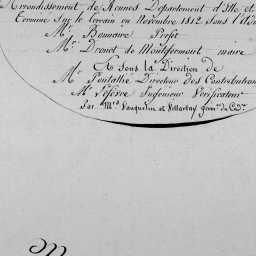 Arrondissement de Rennes Département d'Ille et
Terminé Sur le terrain en Novembre 1812 Sous l'Ad
Mr. Bonnaire Préfet
Mr. Drouet de Montgermont maire
Et sous la Direction de
Mr. Pontallié Directeur des Contribution
Mr. Lefevre Ingénieur Vérificateur
Par Mrs. Vauquelin et géom. du Cad.